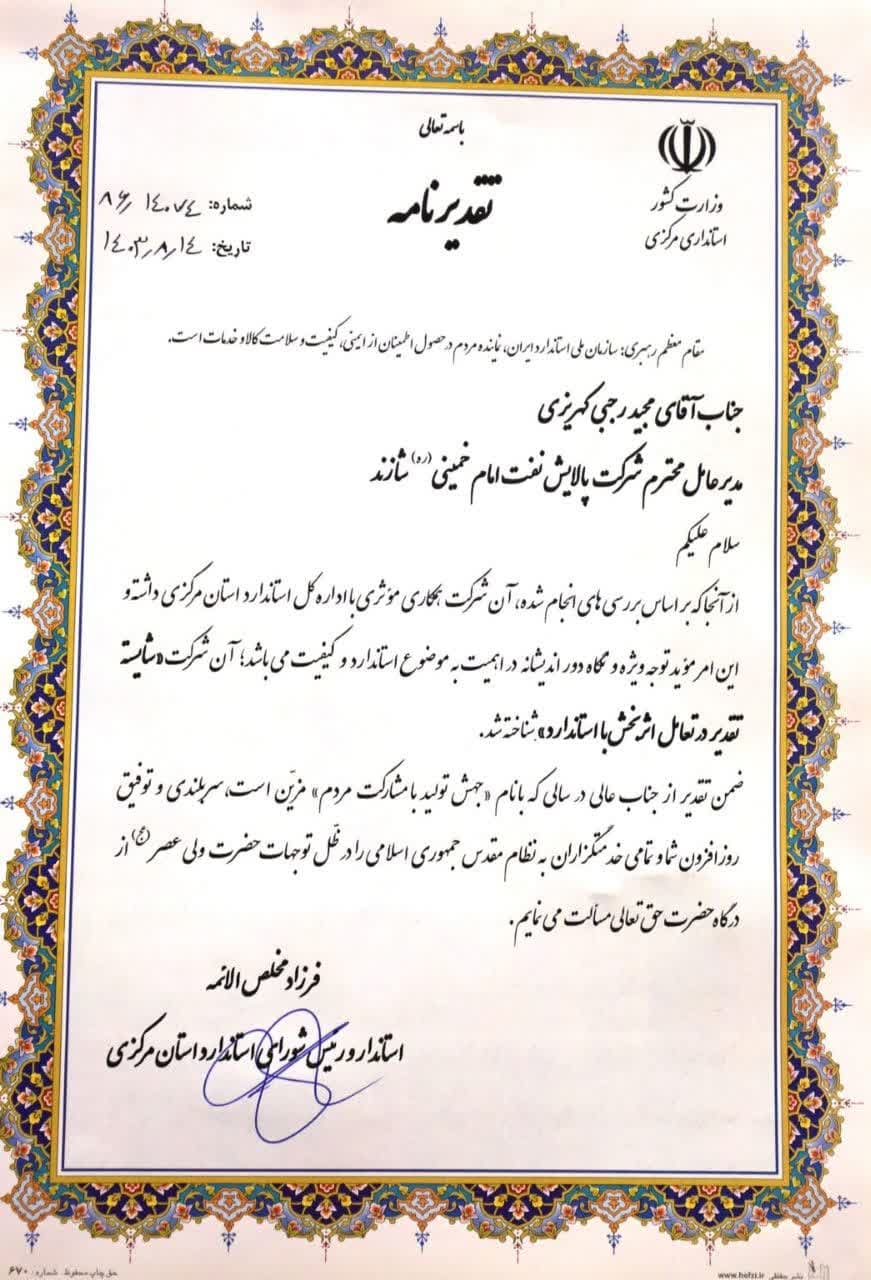 باسمه تعالی
وزارت کشور
استانداری مرکزی
تقدیرنامه
شماره: ۸۶/۱۴۰۷۴
تاریخ: ۱۴۰۳/۸/۱۴
مقام معظم رهبری: سازمان ملی استاندارد ایران، نماینده مردم در حصول اطمینان از ایمنی، کیفیت و سلامت کالا و خدمات است.
جناب آقای مجید رجبی کهریزی
مدیر عامل محترم شرکت پالایش نفت امام خمینی (ره) شازند
سلام علیکم
از آنجا که بر اساس بررسی های انجام شده، آن شرکت همکاری مؤثری با اداره کل استاندارد استان مرکزی داشته و
این امر مؤید توجه ویژه و نگاه دور اندیشانه در اهمیت به موضوع استاندارد و کیفیت می باشد؛ آن شرکت «شایسته
تقدیر در تعامل اثربخش با استاندارد» شناخته شد.
ضمن تقدیر از جناب عالی در سالی که با نام «جهش تولید با مشارکت مردم» مزیّن است، سربلندی و توفیق
روز افزون شما و تمامی خدمتگزاران به نظام مقدس جمهوری اسلامی را در ظّل توجهات حضرت ولی عصر (عج) از
درگاه حضرت حق تعالی مسألت می نمایم.
فرزاد مخلص الائمه
استاندار و رئیس شورای استاندارد استان مرکزی
نشر حفظی www.hefzi.ir
حق چاپ محفوظ شماره: ۶۷۰